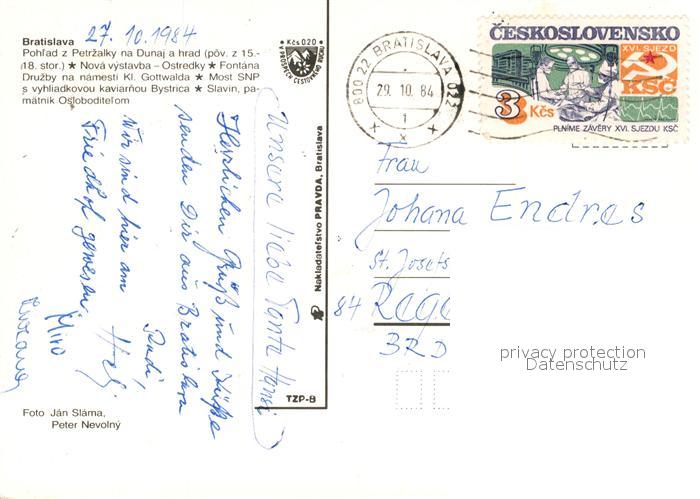 27. 10. 1984
Bratislava
Pohľad z Petržalky na Dunaj a hrad (pôv. z 15.-
18. stor.) ★ Nová výstavba – Ostredky ★ Fontána
Družby na námestí Kl. Gottwalda ★ Most SNP
s vyhliadkovou kaviarňou Bystrica ★ Slavín, pa-
mätník Osloboditeľom
Kčs 0,20
V PROSPECH CESTOVNÉHO RUCHU
Unsere liebe Tante Hansi
Herzlichen Grüß und Küße
senden Dir aus Bratislava
Rudi,
Wir sind hier am
Friedhof gewesen.
Miro
Foto Ján Sláma,
Peter Nevolný
Nakladateľstvo PRAVDA, Bratislava
TZP-B
800 22 BRATISLAVA 022
29. 10. 84
1
ČESKOSLOVENSKO
XVI. SJEZD
KSČ
3 Kčs
PLNÍME ZÁVĚRY XVI. SJEZDU KSČ
Frau
Johana Endres
St. Josefs
84 Rege
BRD
privacy protection
Datenschutz